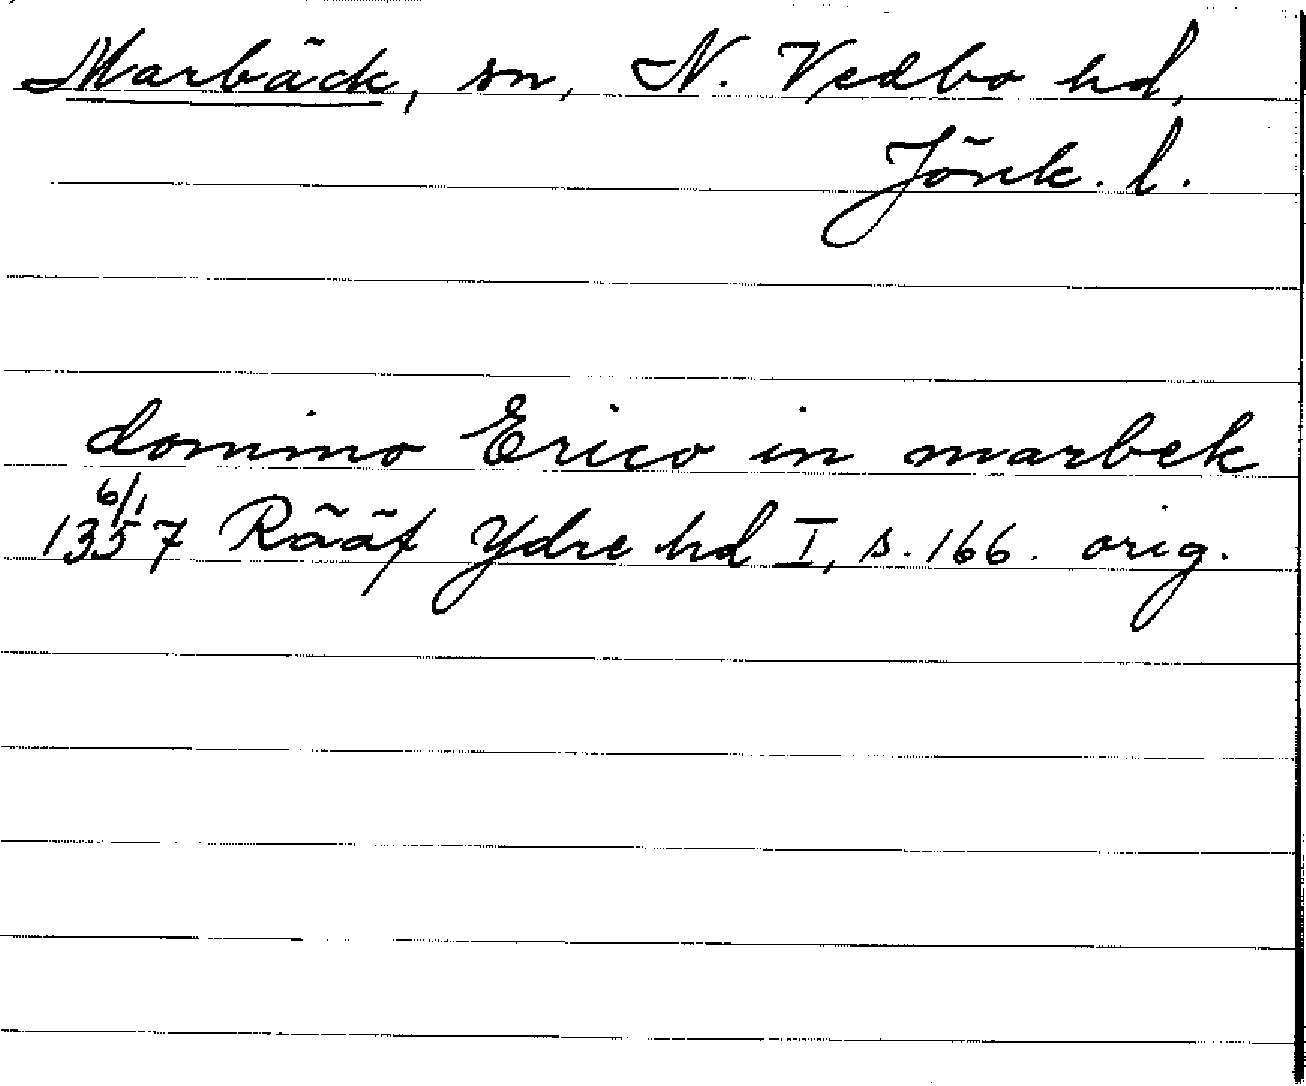 Marbäck, sn, N. Vedbo hd,
Jönk. l.
domino Erico in marbek
6/1
1357 Rääf Ydre hd I, s. 166. orig.